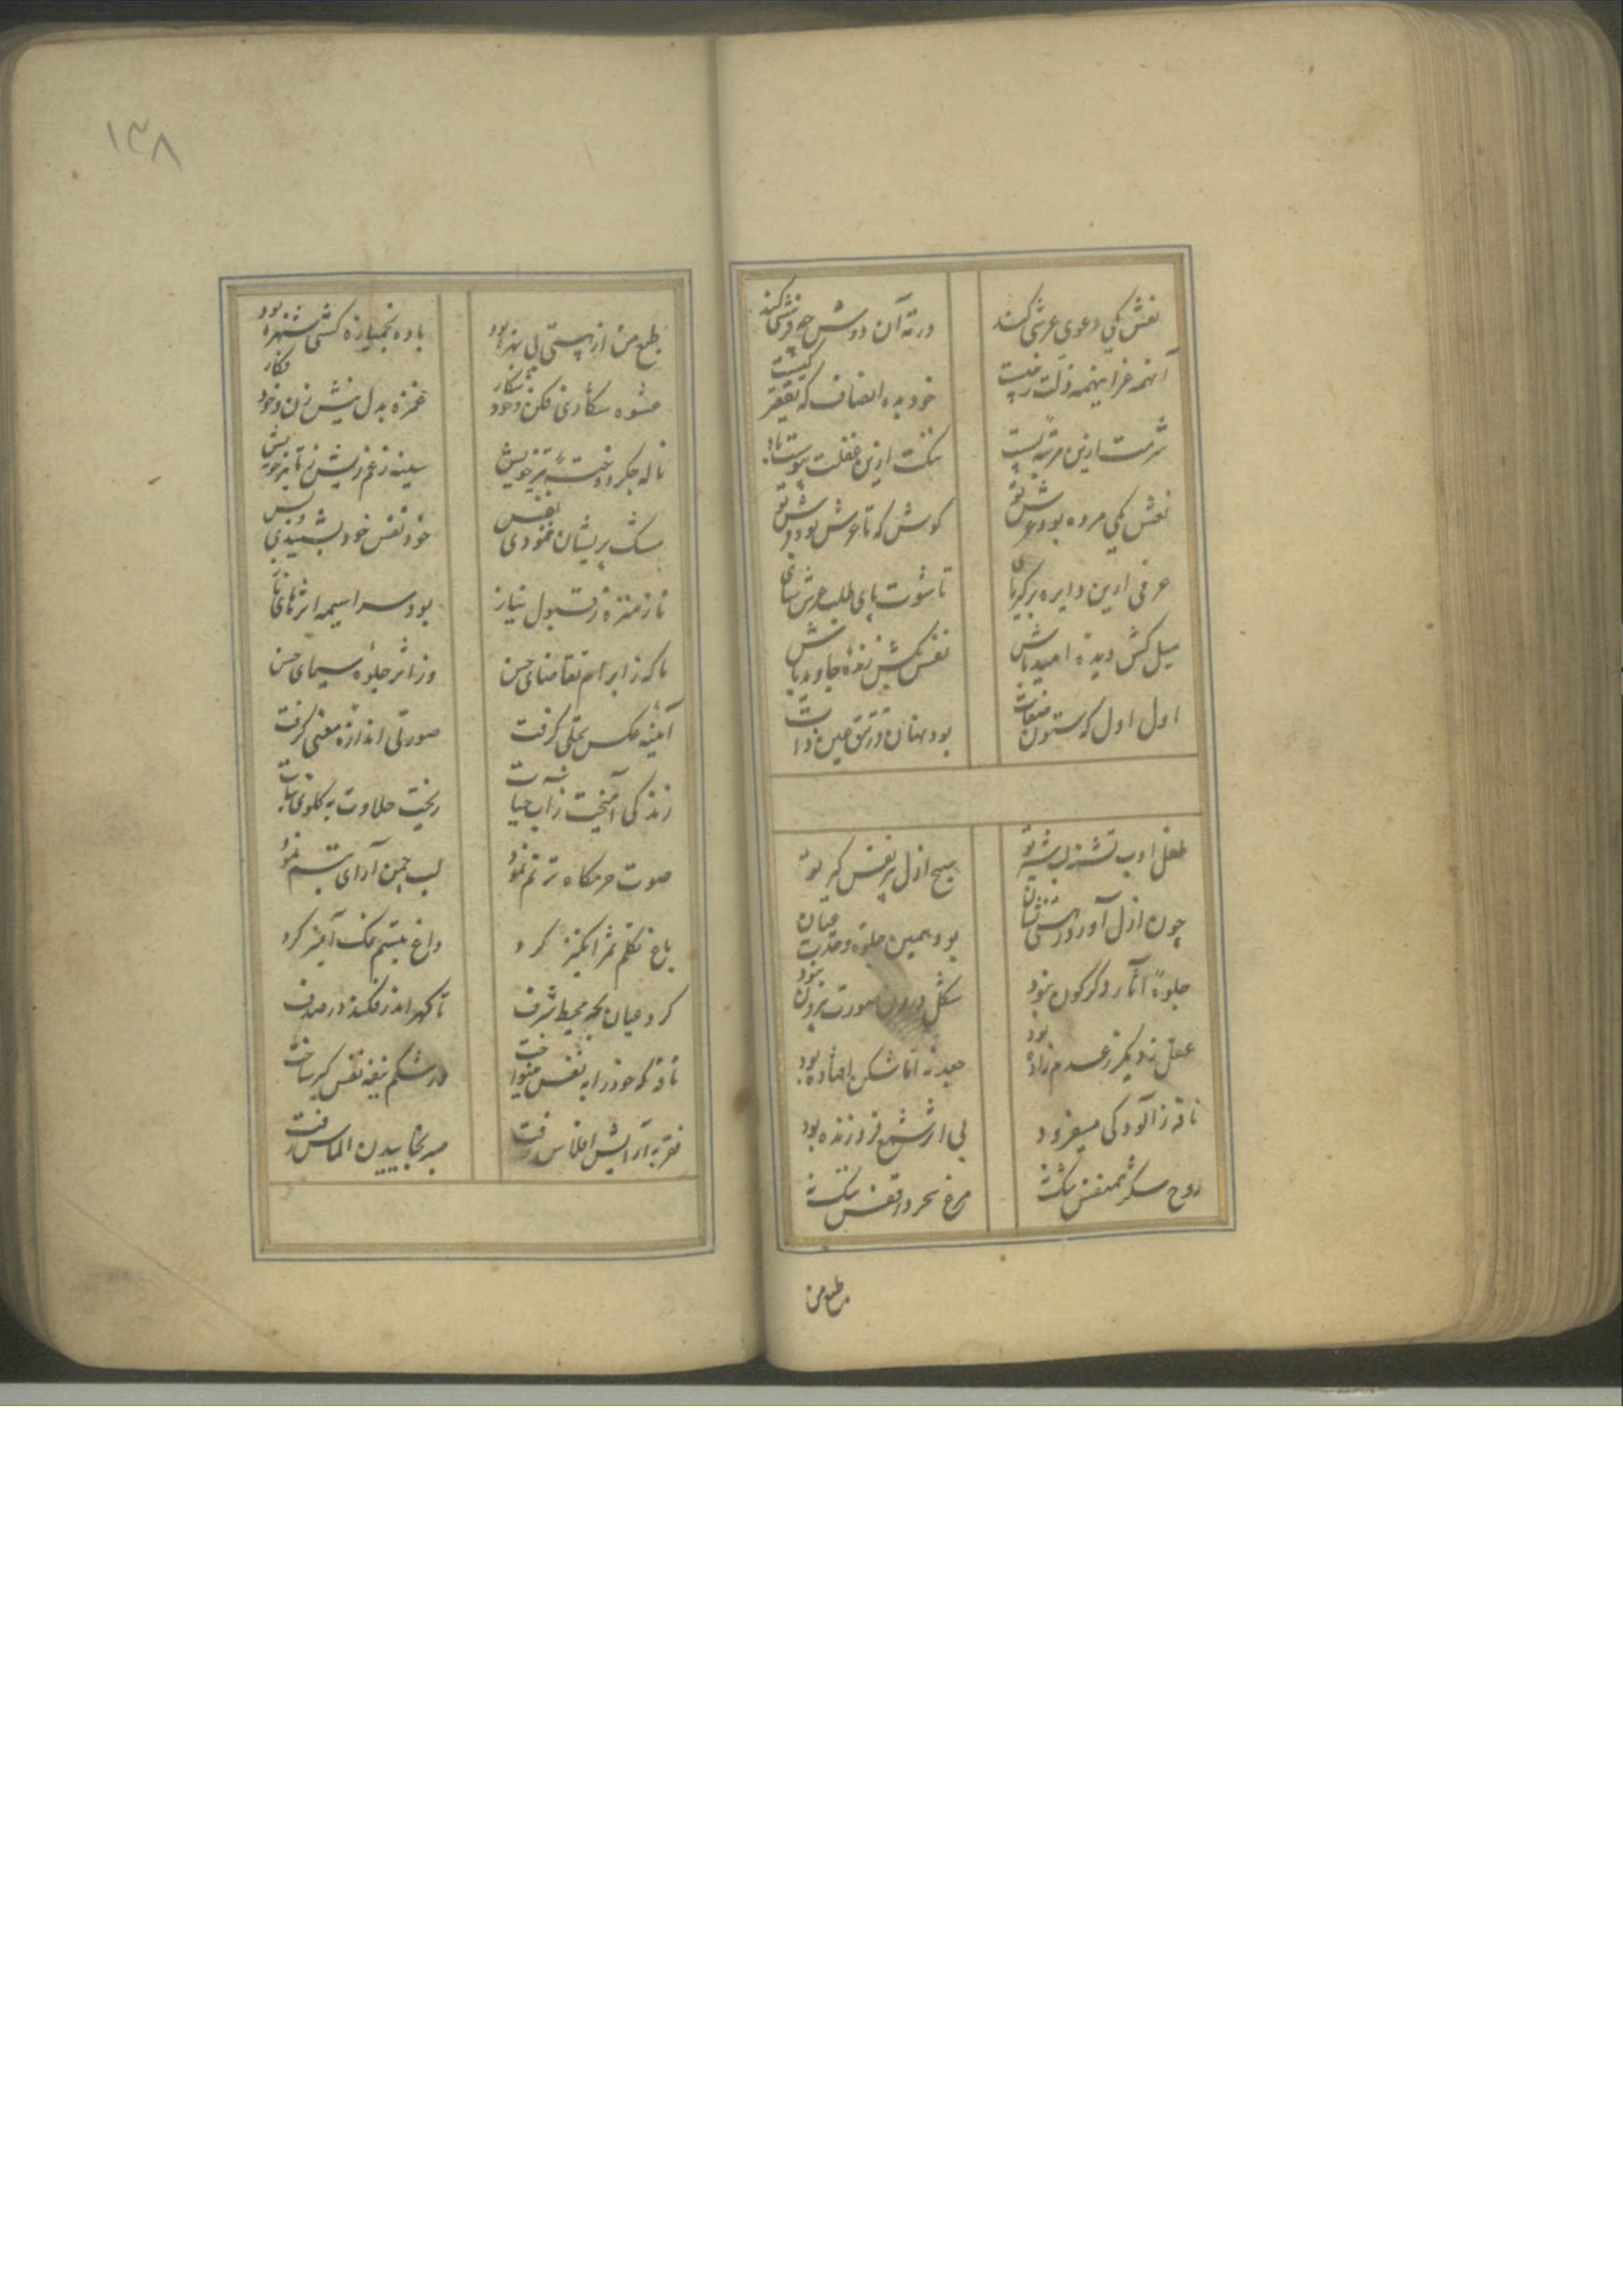 ۱۳۸
نعش یکی دعوی عرشی کند
در ته آن دوش چه فرشی کند
آنهمه عز اینهمه ذلت ز چیست
خود بده انصاف که تقصیر کیست
شرمت ازین مرتبه پست باد
ننگت ازین غفلت پیوست باد
نعش یکی مرده بود عرش تو
کوش که تا عرش بود فرش تو
عرفی ازین دایره بر کبریای
تا شودت پای طلب عرش سای
میل کش دیده امید باش
نفس کش نغمه جاوید باش
اول اول که ستون صفات
بود نهان در تتق عین ذات
طفل ادب تشنه لب شیر تو
صبح ازل پر نفس کیر تو
چون ازل آورد ز هستی نشان
بود همین جلوه وحدت عیان
جلوه آثار دگرگون نبود
شکل درون صورت بیرون نبود
عقل نه دیگر ز عدم زاده بود
صید نه اما شکن افتاده بود
نافه ز آلودگی
بی اثر شمع فروزنده بود
روح سکر همنفس
مرغ سحر در قفس
طبع من
طبع من از هستی بی بهره بود
باده خمیازه کشی شهره بود
عشوه شکاری فکن و خود شکار
غمزه بدل نیش زن و خود فکار
ناله جگر دوخته تیر خویش
سینه ز غم ریش ز تاثیر خویش
مشک پریشان ننمودی نفس
خود نفس خود بشنیدی و بس
ناز منزه ز قبول نیاز
بود سراسیمه اثرهای ناز
تا که ز ابرام تقاضای حسن
وز اثر جلوه سیمای حسن
آینه عکس تجلی گرفت
صورتی اندازه معنی گرفت
زندگی آمیخت ز آب حیات
ریخت حلاوت به گلوی نبات
صوت حرمگاه ترنم نمود
لب چمن آرای تبسم نمود
باغ تکلم ثمر انگیز کرد
داغ تبسم نمک آمیز کرد
کرد عیان لجه محیط شرف
تا گهر اندر فکند در صدف
نافه که خود را به نفس
در شکم بیضه نفس گیر ساخت
فقر به آرایش افلاس رفت
صبر بخاییدن الماس رفت